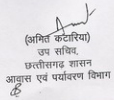 (अमित कटारिया)
उप सचिव,
छत्तीसगढ़ शासन
आवास एवं पर्यावरण विभाग